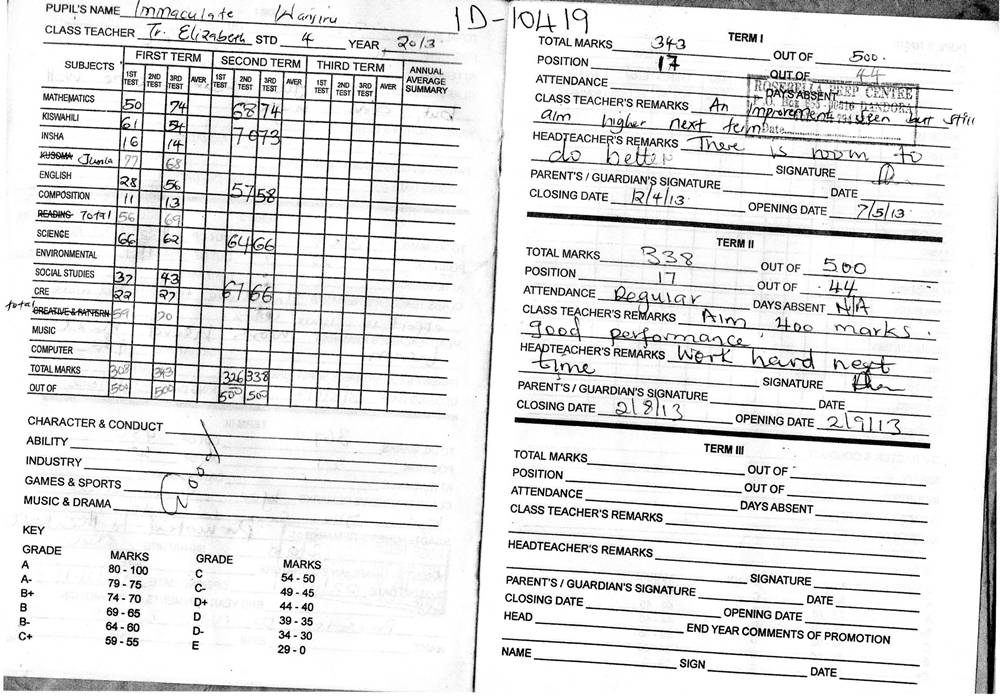 PUPIL'S NAME Immaculate Wanjiru
CLASS TEACHER Tr. Elizabeth STD 4 YEAR 2013
SUBJECTS FIRST TERM SECOND TERM THIRD TERM ANNUAL AVERAGE SUMMARY
1ST TEST 2ND TEST 3RD TEST AVER 1ST TEST 2ND TEST 3RD TEST AVER 1ST TEST 2ND TEST 3RD TEST AVER
MATHEMATICS 50 74 68 74
KISWAHILI 61 54 70 73
INSHA 16 14
KUSOMA Jumla 77 68
ENGLISH 28 56 57 58
COMPOSITION 11 13
READING Total 56 69
SCIENCE 66 62 64 66
ENVIRONMENTAL
SOCIAL STUDIES 37 43 67 66
CRE 22 27
total CREATIVE & PATTERN 59 70
MUSIC
COMPUTER
TOTAL MARKS 308 343 326 338
OUT OF 500 500 500 500
CHARACTER & CONDUCT
ABILITY
INDUSTRY
GAMES & SPORTS
MUSIC & DRAMA
KEY
GRADE MARKS GRADE MARKS
A 80 - 100 C 54 - 50
A- 79 - 75 C- 49 - 45
B+ 74 - 70 D+ 44 - 40
B 69 - 65 D 39 - 35
B- 64 - 60 D- 34 - 30
C+ 59 - 55 E 29 - 0
ID-10419
TERM I
TOTAL MARKS 343 OUT OF 500
POSITION 17 OUT OF 44
ATTENDANCE DAYS ABSENT
ROSEBELL PREP CENTRE
P.O. Box DANDORA
Date
CLASS TEACHER'S REMARKS An improvement seen but still
aim higher next term
HEADTEACHER'S REMARKS There is room to
do better SIGNATURE
PARENT'S / GUARDIAN'S SIGNATURE DATE
CLOSING DATE 12/4/13 OPENING DATE 7/5/13
TERM II
TOTAL MARKS 338 OUT OF 500
POSITION 17 OUT OF 44
ATTENDANCE Regular DAYS ABSENT N/A
CLASS TEACHER'S REMARKS Aim 400 marks.
Good performance
HEADTEACHER'S REMARKS Work hard next
time SIGNATURE
PARENT'S / GUARDIAN'S SIGNATURE DATE
CLOSING DATE 2/8/13 OPENING DATE 2/9/13
TERM III
TOTAL MARKS OUT OF
POSITION OUT OF
ATTENDANCE DAYS ABSENT
CLASS TEACHER'S REMARKS
HEADTEACHER'S REMARKS
SIGNATURE
PARENT'S / GUARDIAN'S SIGNATURE DATE
CLOSING DATE OPENING DATE
HEAD END YEAR COMMENTS OF PROMOTION
NAME SIGN DATE